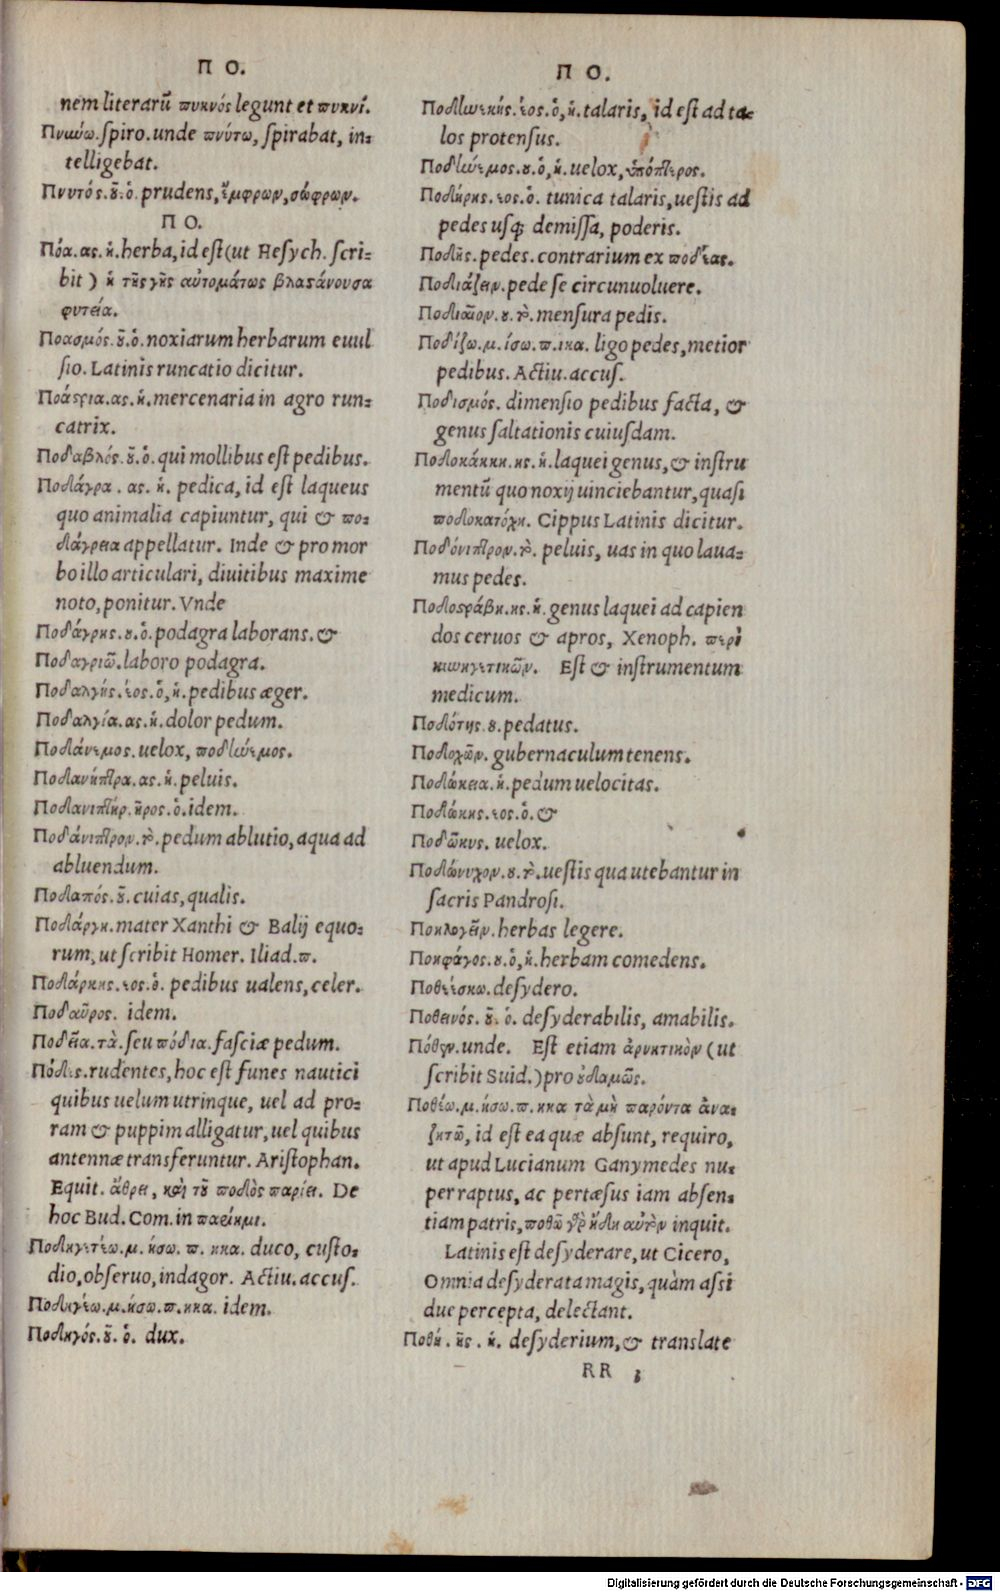 Π Ο.
nem literarũ πυκνός legunt et πυκνί.
Πνύω. spiro. unde πνύτω, spirabat, in=
telligebat.
Πνυτός. οῦ. ὁ. prudens, ἔμφρων, σώφρων.
Π Ο.
Πόα. ας. ἡ. herba, id est (ut Hesych. scri=
bit) ἡ τῆς γῆς αὐτομάτως βλαστάνουσα
φυτεία.
Ποασμός. οῦ. ὁ. noxiarum herbarum euul
sio. Latinis runcatio dicitur.
Ποάστρια. ας. ἡ. mercenaria in agro run=
catrix.
Ποδαβλός. οῦ. ὁ. qui mollibus est pedibus.
Ποδάγρα. ας. ἡ. pedica, id est laqueus
quo animalia capiuntur, qui & πο=
δάγρεια appellatur. Inde & pro mor
bo illo articulari, diuitibus maxime
noto, ponitur. Vnde
Ποδάγρης. ου. ὁ. podagra laborans. &
Ποδαγριῶ. laboro podagra.
Ποδαλγής. έος. ὁ, ἡ. pedibus æger.
Ποδαλγία. ας. ἡ. dolor pedum.
Ποδάνεμος. uelox, ποδήνεμος.
Ποδανήπτρα. ας. ἡ. peluis.
Ποδανιπτήρ. ῆρος. ὁ. idem.
Ποδάνιπτρον. τὸ. pedum ablutio, aqua ad
abluendum.
Ποδαπός. οῦ. cuias, qualis.
Ποδάργη. mater Xanthi & Balij equo=
rum, ut scribit Homer. Iliad. π.
Ποδάρκης. εος. ὁ. pedibus ualens, celer.
Ποδαῦρος. idem.
Ποδεῖα. τὰ. seu πόδια. fasciæ pedum.
Πόδες. rudentes, hoc est funes nautici
quibus uelum utrinque, uel ad pro=
ram & puppim alligatur, uel quibus
antennæ transferuntur. Aristophan.
Equit. ἄθρει, καὶ τοῦ ποδὸς παρίει. De
hoc Bud. Com. in παρίημι.
Ποδηγετέω. μ. ήσω. π. ηκα. duco, custo=
dio, obseruo, indagor. Actiu. accus.
Ποδηγέω. μ. ήσω. π. ηκα. idem.
Ποδηγός. οῦ. ὁ. dux.
Π Ο.
Ποδηνεκής. έος. ὁ, ἡ. talaris, id est ad ta=
los protensus.
Ποδήνεμος. ου. ὁ, ἡ. uelox, ὑπόπτερος.
Ποδήρης. εος. ὁ. tunica talaris, uestis ad
pedes usq; demissa, poderis.
Ποδῆς. pedes. contrarium ex ποδέας.
Ποδιάζειν. pede se circunuoluere.
Ποδιαῖον. ου. τὸ. mensura pedis.
Ποδίζω. μ. ίσω. π. ικα. ligo pedes, metior
pedibus. Actiu. accus.
Ποδισμός. dimensio pedibus facta, &
genus saltationis cuiusdam.
Ποδοκάκκη. ης. ἡ. laquei genus, & instru
mentũ quo noxij uinciebantur, quasi
ποδοκατόχη. Cippus Latinis dicitur.
Ποδόνιπτρον. τὸ. peluis, uas in quo laua=
mus pedes.
Ποδοστράβη. ης. ἡ. genus laquei ad capien
dos ceruos & apros, Xenoph. περὶ
κυνηγετικῶν. Est & instrumentum
medicum.
Ποδότης. ου. pedatus.
Ποδοχῶν. gubernaculum tenens.
Ποδώκεια. ἡ. pedum uelocitas.
Ποδώκης. εος. ὁ. &
Ποδῶκυς. uelox.
Ποδώνυχον. ου. τὸ. uestis qua utebantur in
sacris Pandrosi.
Ποηλογεῖν. herbas legere.
Ποηφάγος. ου. ὁ, ἡ. herbam comedens.
Ποθέεσκω. desydero.
Ποθεινός. οῦ. ὁ. desyderabilis, amabilis.
Πόθεν. unde. Est etiam ἀρνητικὸν (ut
scribit Suid.) pro οὐδαμῶς.
Ποθέω. μ. ήσω. π. ηκα τὰ μὴ παρόντα ἀνα=
ζητῶ, id est ea quæ absunt, requiro,
ut apud Lucianum Ganymedes nu=
per raptus, ac pertæsus iam absen=
tiam patris, ποθῶ γὰρ ἤδη αὐτὸν inquit.
Latinis est desyderare, ut Cicero,
Omnia desyderata magis, quàm assi
due percepta, delectant.
Ποθή. ῆς. ἡ. desyderium, & translate
RR 3
Digitalisierung gefördert durch die Deutsche Forschungsgemeinschaft - DFG